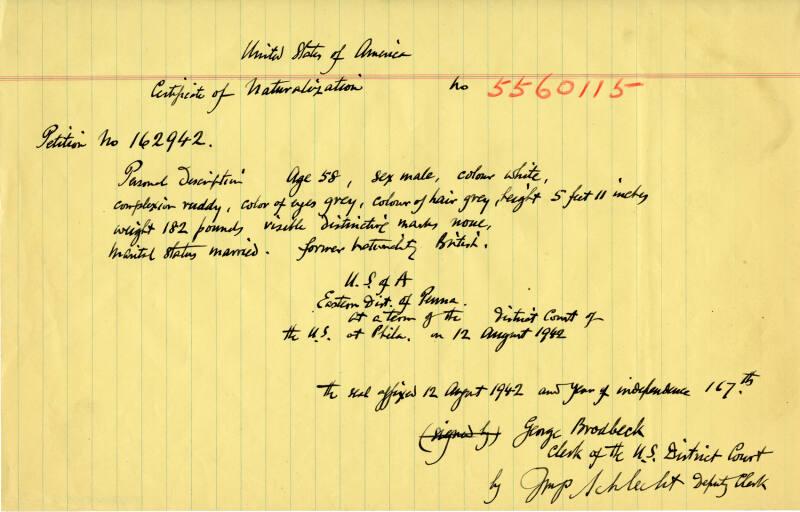 United States of America
Certificate of Naturalization no 5560115
Petition No 162942.
Personal Description Age 58, sex male, colour white,
complexion ruddy, color of eyes grey, colour of hair grey, height 5 feet 11 inches
weight 182 pounds visible distinctive marks none,
Marital status married. former nationality British.
U.S of A
Eastern Dist. of Penna.
at a term of the District Court of
the U.S. at Phila. on 12 August 1942
the seal affixed 12 August 1942 and year of independence 167th
(signed by) George Brodbeck
Clerk of the U.S. District Court
by Schlecht Deputy Clerk